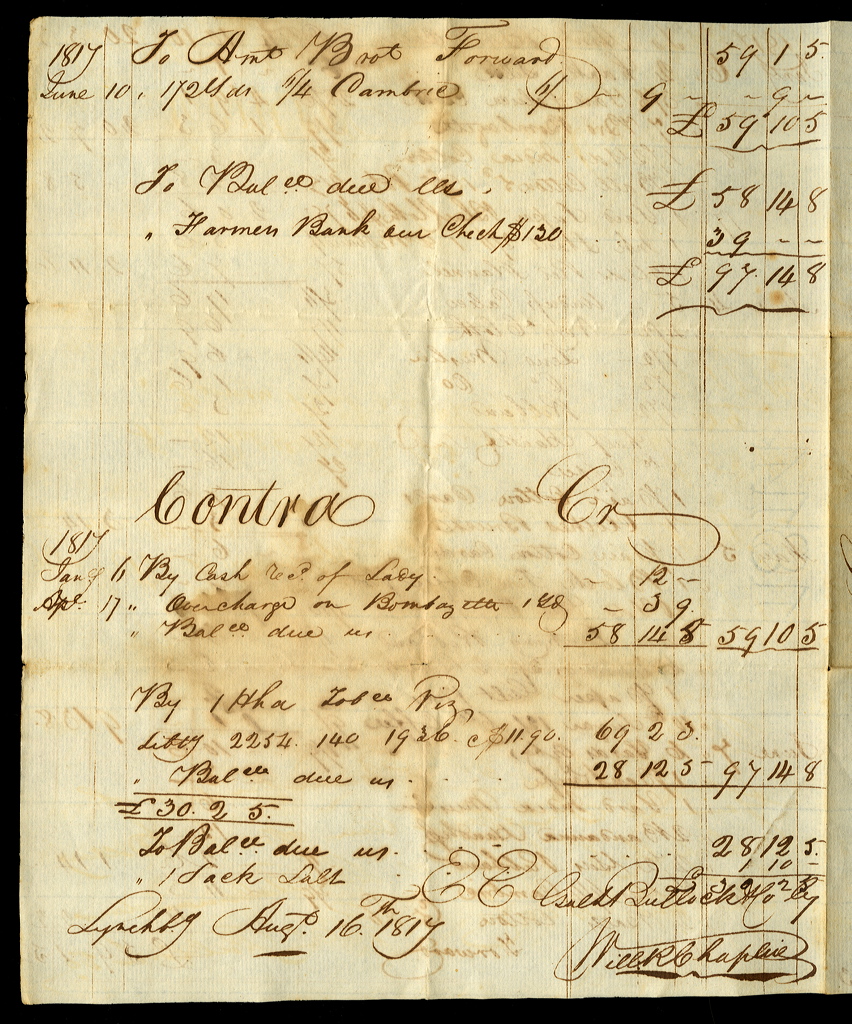 1817 To Amt Brot Forward 59 1 5
June 10 " 1 1/2 Yds 6/4 Cambric 6/ - 9 - - 9 -
£ 59 10 5
To Balce due us . £ 58 14 8
" Farmers Bank our Check $130 39 - -
£ 97 14 8
Contra Cr
1817
Jany 6 By Cash recd of Lady 12 -
Apl 17 " Overcharge on Bombazette 1 Yd - 3 9
" Balce due us 58 14 8 59 10 5
By 1 Hhd Tobco Viz
2254. 140 1936. @ $11.90. 69 2 3.
" Balce due us. 28 12 5 97 14 8
£ 30. 2 5.
To Balce due us. 28 12 5.
" 1 Sack Salt 1 10 -
EE £ 30 2 5
Bullock & Co
Lynchbg Augt. 16.th 1817
Will R Chaplin